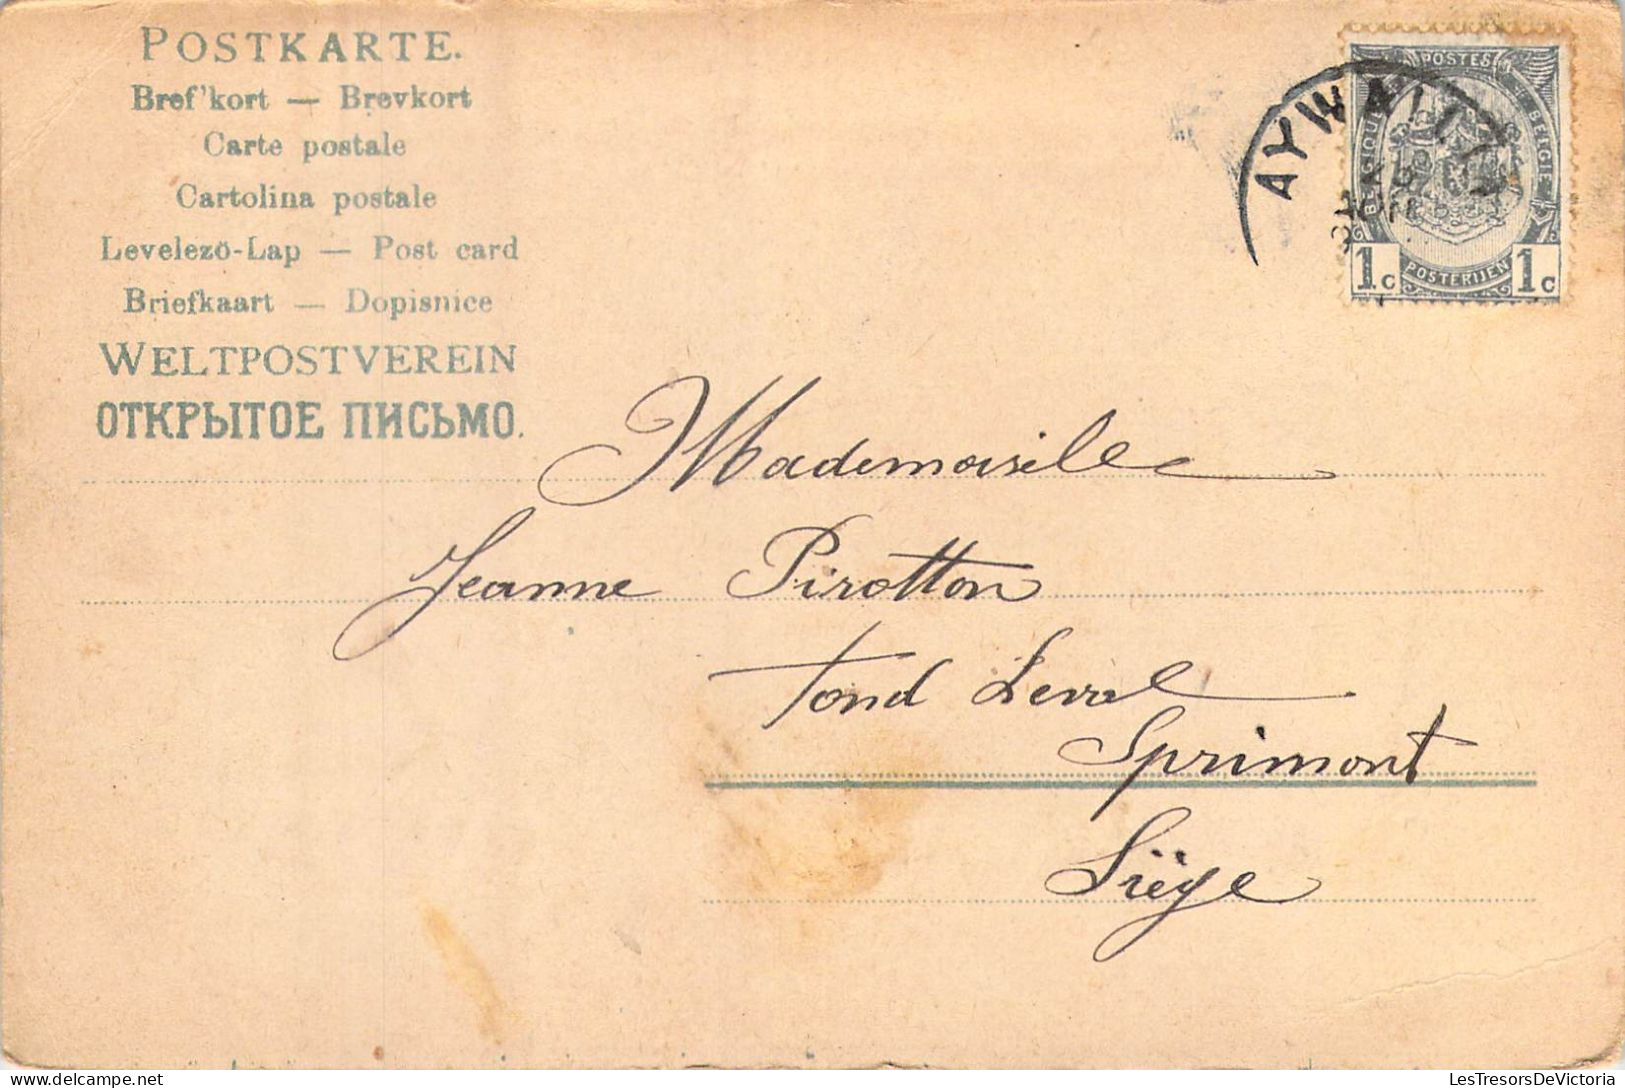 POSTKARTE.
Bref'kort — Brevkort
Carte postale
Cartolina postale
Levelezö-Lap — Post card
Briefkaart — Dopisnice
WELTPOSTVEREIN
ОТКРЫТОЕ ПИСЬМО.
POSTES
BELGIQUE
BELGIE
POSTERIJEN
1c 1c
AYWAI
Mademoiselle
Jeanne Pirotton
fond Leval
Sprimont
Liège
LesTresorsDeVictoria